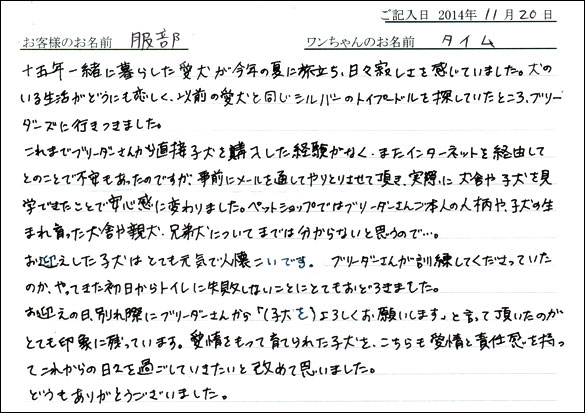 ご記入日 2014年 11月 20日
お客様のお名前 服部 ワンちゃんのお名前 タイム
十五年一緒に暮らした愛犬が今年の夏に旅立ち、日々寂しさを感じていました。犬の
いる生活がどうにも恋しく、以前の愛犬と同じシルバーのトイプードルを探していたところ、ブリー
ダーズに行きつきました。
これまでブリーダーさんから直接子犬を購入した経験がなく、またインターネットを経由して
とのことで不安もあったのですが、事前にメールを通してやりとりさせて頂き、実際に犬舎や子犬を見
学できたことで安心感に変わりました。ペットショップではブリーダーさんご本人の人柄や、子犬の生
まれ育った犬舎や親犬、兄弟犬についてまでは分からないと思うので…。
お迎えした子犬はとても元気で人懐こいです。ブリーダーさんが訓練してくださっていた
のか、やってきた初日からトイレに失敗しないことにとてもおどろきました。
お迎えの日、別れ際にブリーダーさんから「(子犬を)よろしくお願いします」と言って頂いたのが
とても印象に残っています。愛情をもって育てられた子犬を、こちらも愛情と責任感を持っ
てこれからの日々を過ごしていきたいと改めて思いました。
どうもありがとうございました。